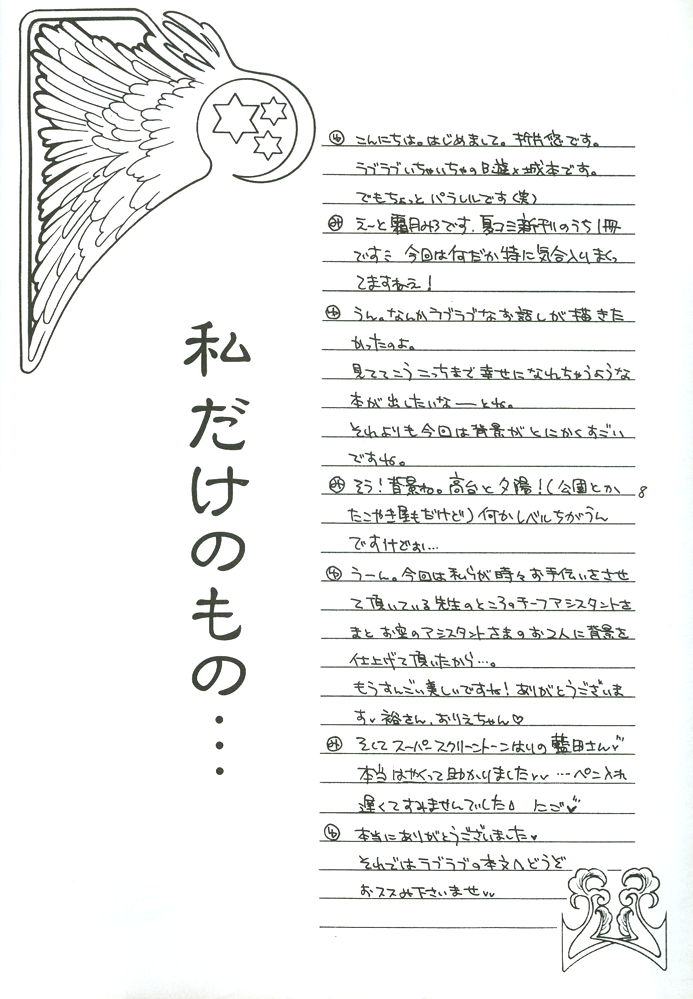 私だけのもの…
ゆ こんにちは。はじめまして。折片悠です。
ラブラブいちゃいちゃのB遊×城本です。
でもちょっとパラレルです(笑)
み えーと霜月みろです。夏コミ新刊のうち1冊
です 今回は何だか特に気合入りまくっ
てますねえ!
ゆ うん。なんかラブラブなお話しが描きた
かったのよ。
見ててこうこっちまで幸せになれちゃうような
本が出したいなーーとね。
それよりも今回は背景がとにかくすごい
ですね。
み そう!背景ね。高台と夕陽!(公園とか
たこやき屋もだけど)何かレベルちがうん
ですけどぉ…
ゆ うーん。今回は私らが時々お手伝いをさせ
て頂いている先生のところのチーフアシスタントさ
まとお空のアシスタントさまのお2人に背景を
仕上げて頂いたから…。
もうすんごい美しいですね!ありがとうございま
す♥裕さん、おりえちゃん♡
み そしてスーパースクリーントーンはりの藍田さん♥
本当はやくって助かりました♥♥…ペン入れ
遅くてすみませんでした
ゆ 本当にありがとうございました♥
それではラブラブの本文へどうぞ
おススみ下さいませ♥♥
8